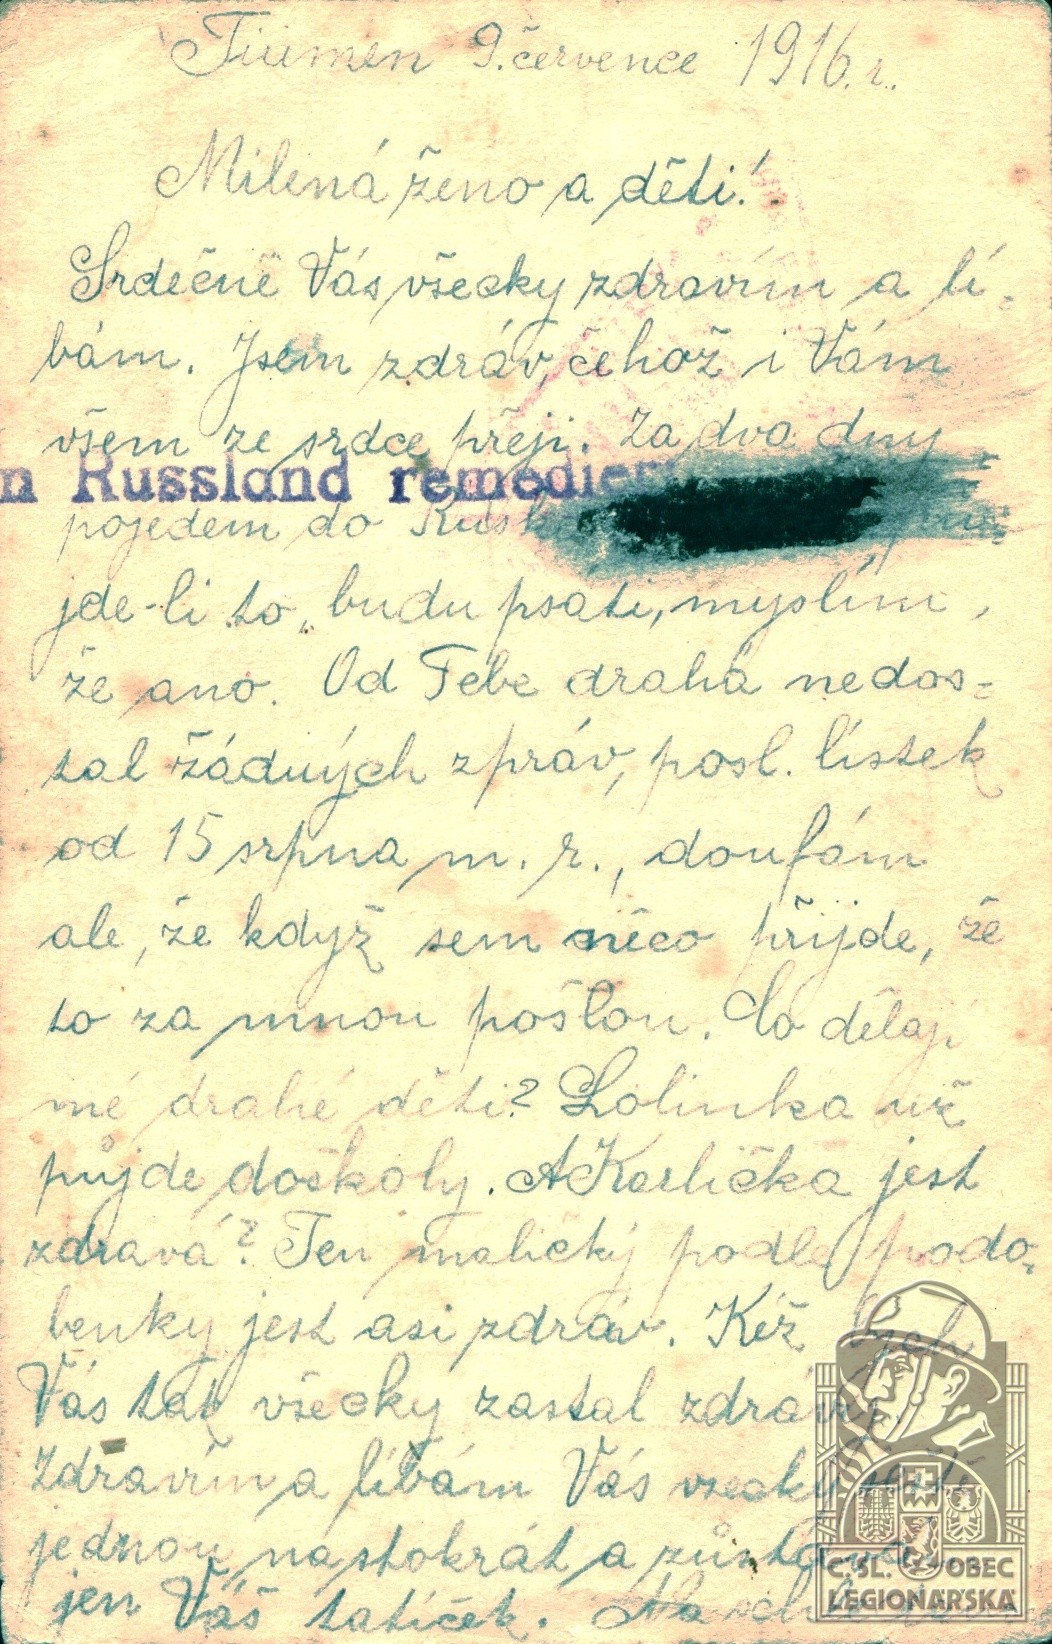 Tiumen 9. července 1916. r.
Milená ženo a děti!
Srdečně Vás všecky zdravím a lí-
bám. Jsem zdráv, čehož i Vám
všem ze srdce přeji. Za dva dny
n Russland remedier
pojedem do Ruska
jde-li to, budu psati, myslím,
že ano. Od Tebe drahá nedos-
tal žádných zpráv, posl. lístek
od 15 srpna m. r., doufám
ale, že když sem něco přijde, že
to za mnou pošlou. Co dělaj
mé drahé děti? Lolinka už
půjde do školy. A Karlička jest
zdravá? Ten maličký podle podo-
benky jest asi zdráv. Kéž bych
Vás tak všecky zastal zdrávy.
Zdravím a líbám Vás všecky ještě
jednou nastokrát a zůstávám
jen Váš tatíček. Na
Č.SL. OBEC
LEGIONÁŘSKÁ